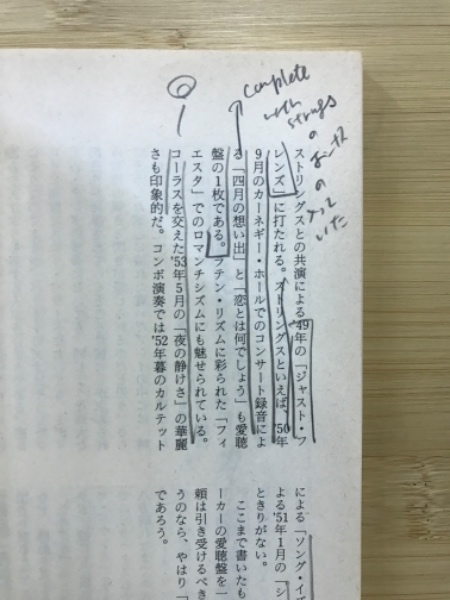 complete
with
strings
の
の
いた
ストリングスとの共演による'49年の「ジャスト・フ
レンズ」に打たれる。ストリングスといえば、'50年
9月のカーネギー・ホールでのコンサート録音によ
る「四月の想い出」と「恋とは何でしょう」も愛聴
盤の1枚である。ラテン・リズムに彩られた「フィ
エスタ」でのロマンチシズムにも魅せられている。
コーラスを交えた'53年5月の「夜の静けさ」の華麗
さも印象的だ。コンボ演奏では'52年暮のカルテット
による「ソング・イ
よる'51年1月の「シ
ときりがない。
ここまで書いたも
ーカーの愛聴盤を一
頼は引き受けるべき
うのなら、やはり「
であろう。